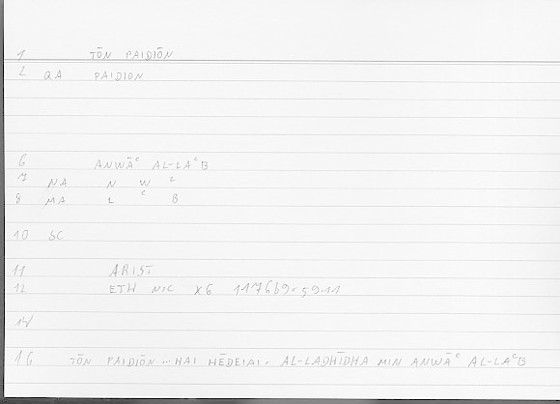 1 TŌN PAIDIŌN
2 QA PAIDION
6 ANWĀᶜ AL-LAᶜB
7 NA N W ᶜ
8 MA L ᶜ B
10 SC
11 ARIST
12 ETH NIC X6 1176b9-5911
14
16 TŌN PAIDIŌN ... HAI HĒDEIAI = AL-LADHĪDHA MIN ANWĀᶜ AL-LAᶜB